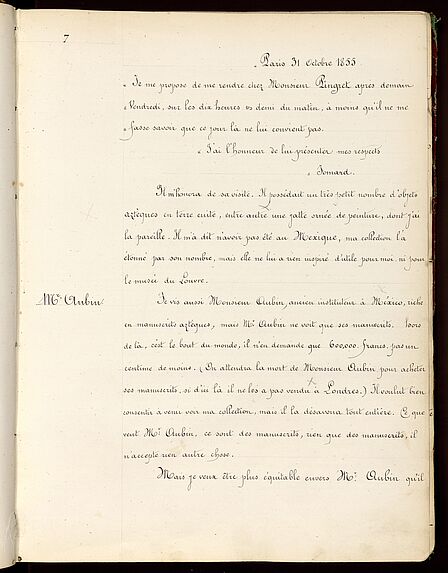 7
Paris 31 Octobre 1855
« Je me propose de me rendre chez Monsieur Pingret après demain
« Vendredi, sur les dix heures et demi du matin, à moins qu'il ne me
« fasse savoir que ce jour là ne lui convient pas.
« J'ai l'honneur de lui présenter mes respects
« Jomard.
Il m'honora de sa visite. Il possédait un très petit nombre d'objets
aztèques en terre cuite, entre autre une jatte ornée de peinture, dont j'ai
la pareille. Il m'a dit n'avoir pas été au Mexique, ma collection l'a
étonné par son nombre, mais elle ne lui a rien inspiré d'utile pour moi, ni pour
le musée du Louvre.
Mr. Aubin
Je vis aussi Monsieur Aubin, ancien instituteur à México, riche
en manuscrits aztèques, mais Mr. Aubin ne voit que ses manuscrits. hors
de là, c'est le bout du monde, il n'en demande que 600,000 francs, pas un
centime de moins. (On attendra la mort de Monsieur Aubin pour acheter
ses manuscrits, si d'ici là il ne les a pas vendu à Londres.) Il voulut bien
consentir à venir voir ma collection, mais il la désavoua tout entière. Ce que
veut Mr. Aubin, ce sont des manuscrits, rien que des manuscrits, il
n'accepte rien autre chose.
Mais je veux être plus équitable envers Mr. Aubin qu'il